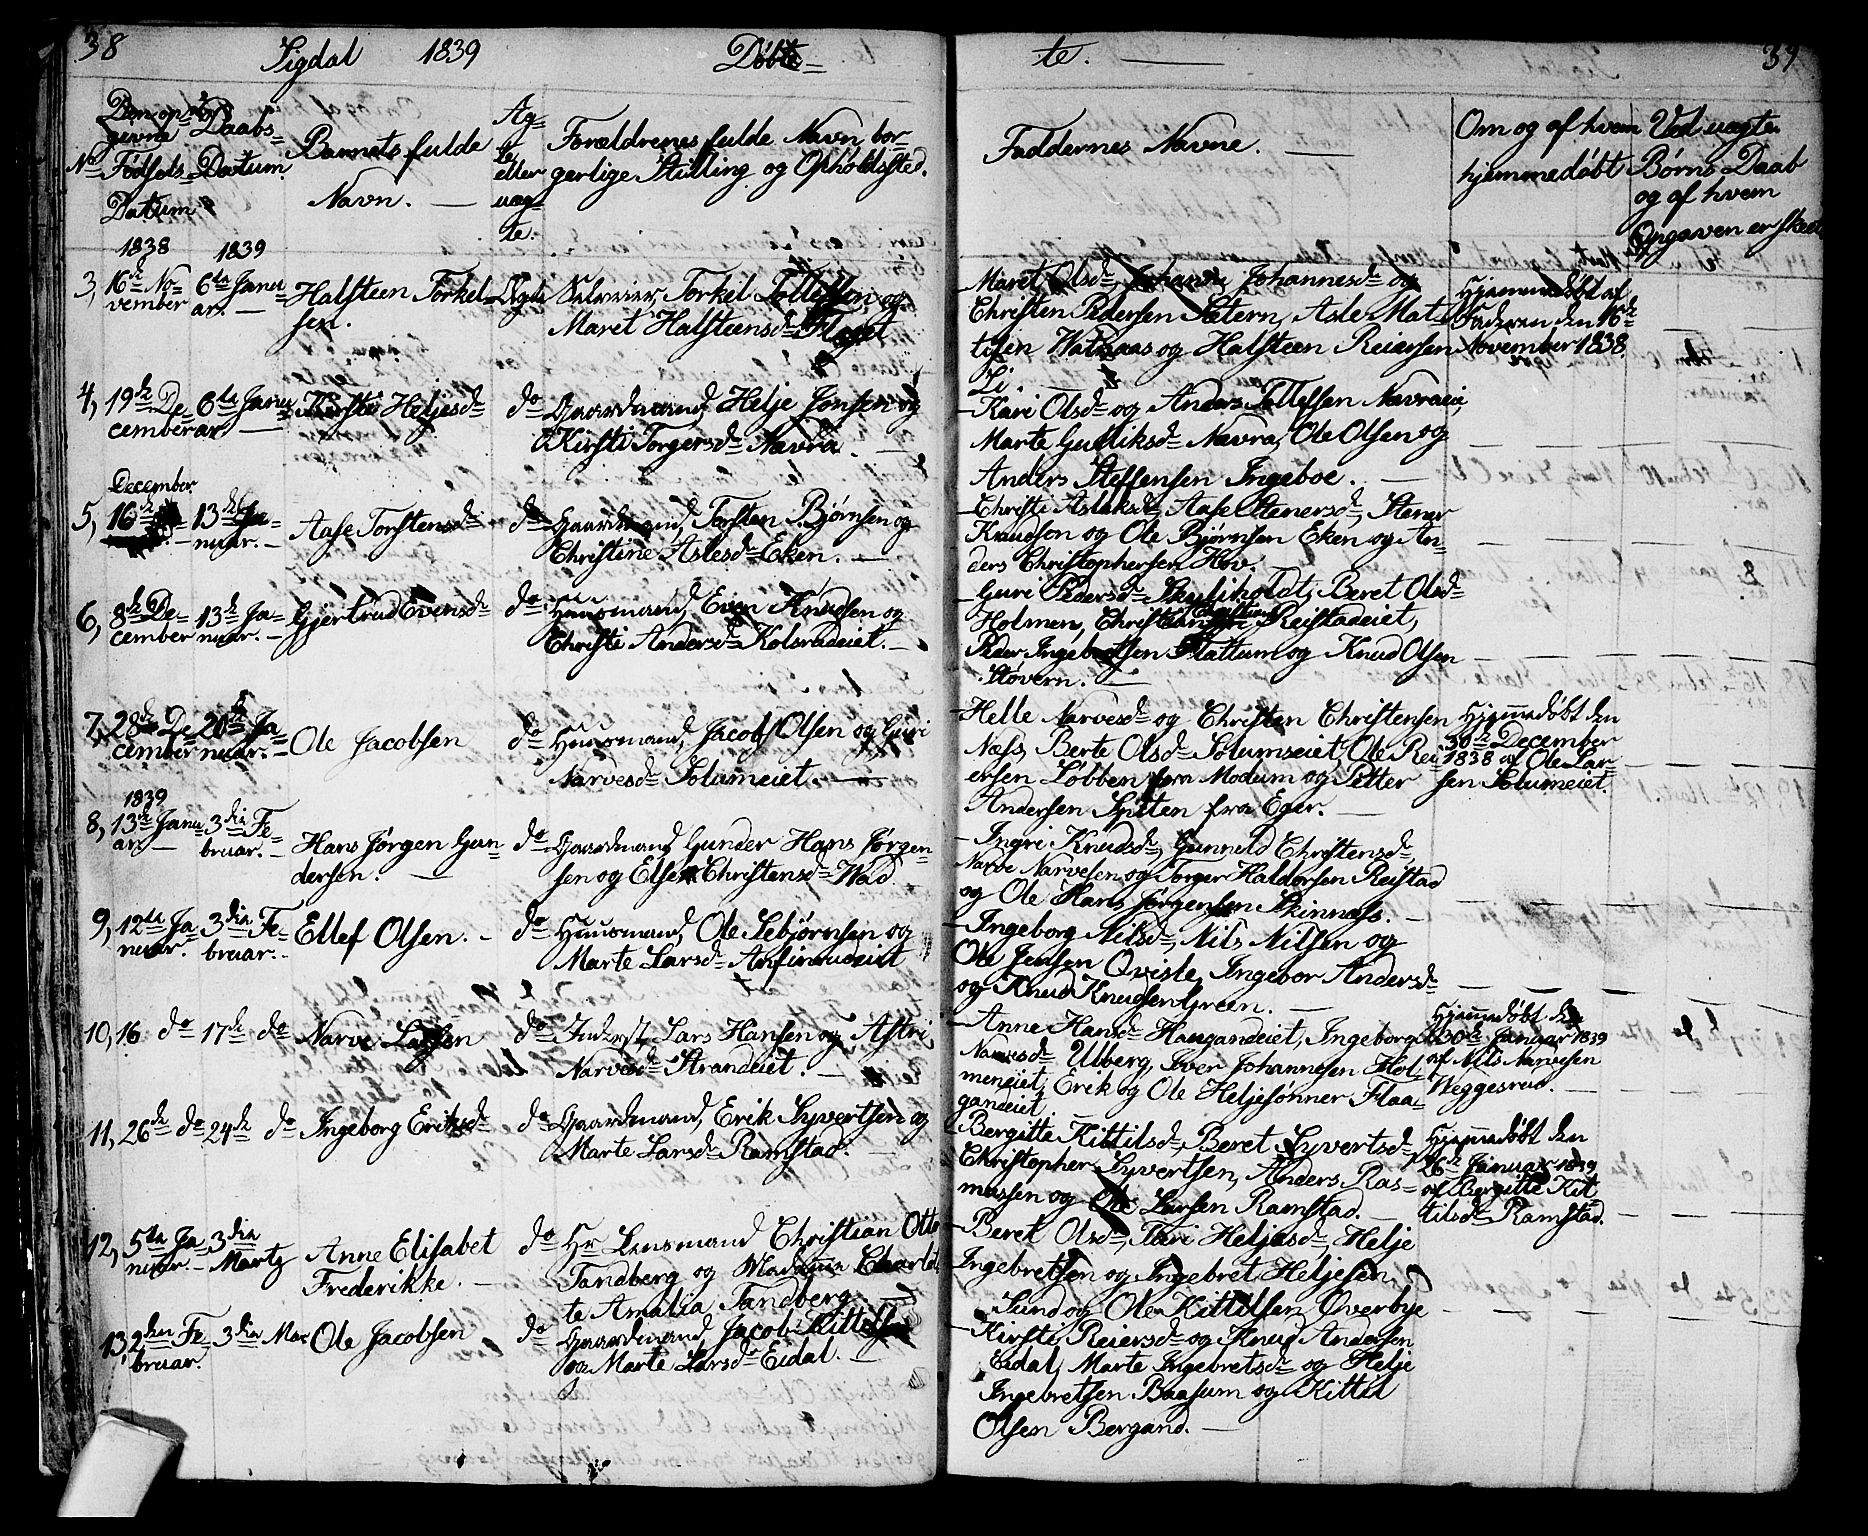 38 Sigdal 1839 Døbte
te. 39
No
Den op-
givne
Fødsels
Datum
Daabs-
Datum
Barnets fulde
Navn.
Æg-
te
eller
uæg-
te.
Forældrenes fulde Navn, bor-
gerlige Stilling og Opholdssted.
Faddernes Navne.
Om og af hvem
hjemmedøbt
Ved uægte
Børns Daab
og af hvem
Opgaven er skeet
1838 1839
3, 16de No- 6te Janu- Halsteen Torkel- Ægte Torkel Tollefsen og
vember ar. sen. Maret Halsteensdr Flaget
Maret Olsdr, Johanne Johannesdr og
Christen Pedersen Sætern, Asle Mat-
tisen Watnaas og Halsteen Reiersen
Li.
Hjemmedøbt af
Faderen den 16de
November 1838.
4, 19de De- 6te Janu- Kirsti Heljesdr do Gaardmand Helje Jonsen og
cember ar Kirsti Torgersdr Nævra.
Kari Olsdr og Anders Tollefsen Nævraeie,
Marte Gulliksdr Nævra, Ole Olsen og
Anders Steffensen Ingeboe.
December
5, 16de 13de Ja- Aase Torstensdr do Gaardmand Torsten Bjørnsen og
nuar. Christine Aslesdr Eken.
Christi Aslaksdr, Aase Stenersdr, Stener
Knudson og Ole Bjørnsen Eken og An-
ders Christophersen Hov.
6, 8de De- 13de Ja- Gjertrud Evensdr do Huusmand Even Knudsen og
cember nuar. Christi Andersdr Kolsrudeiet.
Guri Pedersdr Skuliholdt, Beret Olsdr
Holmen, Christen Reistadeiet,
Peder Ingebretsen Flattum og Knud Olsen
Støvern.
7, 28de De- 20de Ja- Ole Jacobsen do Huusmand Jacob Olsen og Guri
cember nuar. Narvesdr Solumeiet.
Helle Narvesdr og Christen Christensen
Næss, Berte Olsdr Solumseiet, Ole Rei-
ersen Løbben fra Modum og Petter
Andersen Spiten fra Eger.
Hjemmedøbt den
30te December
1838 af Ole Lar-
sen Solumeiet.
1839
8, 13de Janu- 3die Fe- Hans Jørgen Gun- do Gaardmand Gunder Hans Jørgen-
ar. bruar. dersen. sen og Else Christensdr Wad
Ingri Knudsdr, Gunneld Christensdr,
Narve Narvesen og Torger Haldorsen Reistad
og Ole Hans Jørgensen Skinnæss.
9, 12te Ja- 3die Fe- Ellef Olsen. do Huusmand Ole Sebjørnsen og
nuar. bruar. Marte Larsdr Anfinrudeiet
Ingeborg Nilsdr, Nils Nilsen og
Ole Jensen Qvisle, Ingebor Andersdr
og Knud Knudsen Green.
10, 16 do 17de do Narve Larsen do Inderst Lars Hansen og Astri
Narvesdr Strandeiet.
Anne Hansdr Haugandeiet, Ingeborg
Narvesdr Ulberg, Iver Johannesen Hol-
meneiet, Erik og Ole Heljesønner Flaa-
gandeiet.
Hjemmedøbt den
30te Januar 1839
af Nils Narvesen
Weggesrud.
11, 26de do 24de do Ingeborg Eriksdr do Gaardmand Erik Syvertsen og
Marte Larsdr Ramstad.
Bergitte Kittilsdr, Beret Syvertsdr,
Christopher Syvertsen, Anders Ras-
mussen og Ole Larsen Ramstad.
Hjemmedøbt den
26de Januar 1839
af Bergitte Kit-
tilsdr Ramstad.
12, 5te Ja- 3die Anne Elisabet do Hr Lensmand Christian Otto
nuar. Martz Frederikke. Tandberg og Madame Charlot-
te Amalia Tandberg.
Beret Olsdr, Kari Heljesdr, Helje
Ingebretsen og Ingebret Heljesen
Lund og Ole Kittilsen Överbye
13, 2den Fe- 3die Mar Ole Jacobsen do Gaardmand Jacob Kittelsen
bruar. og Marte Larsdr Eidal.
Kirsti Reiersdr og Knud Andersen
Eidal, Marte Ingebretsdr og Helje
Ingebretsen Baasum og Kittil
Olsen Bergand.